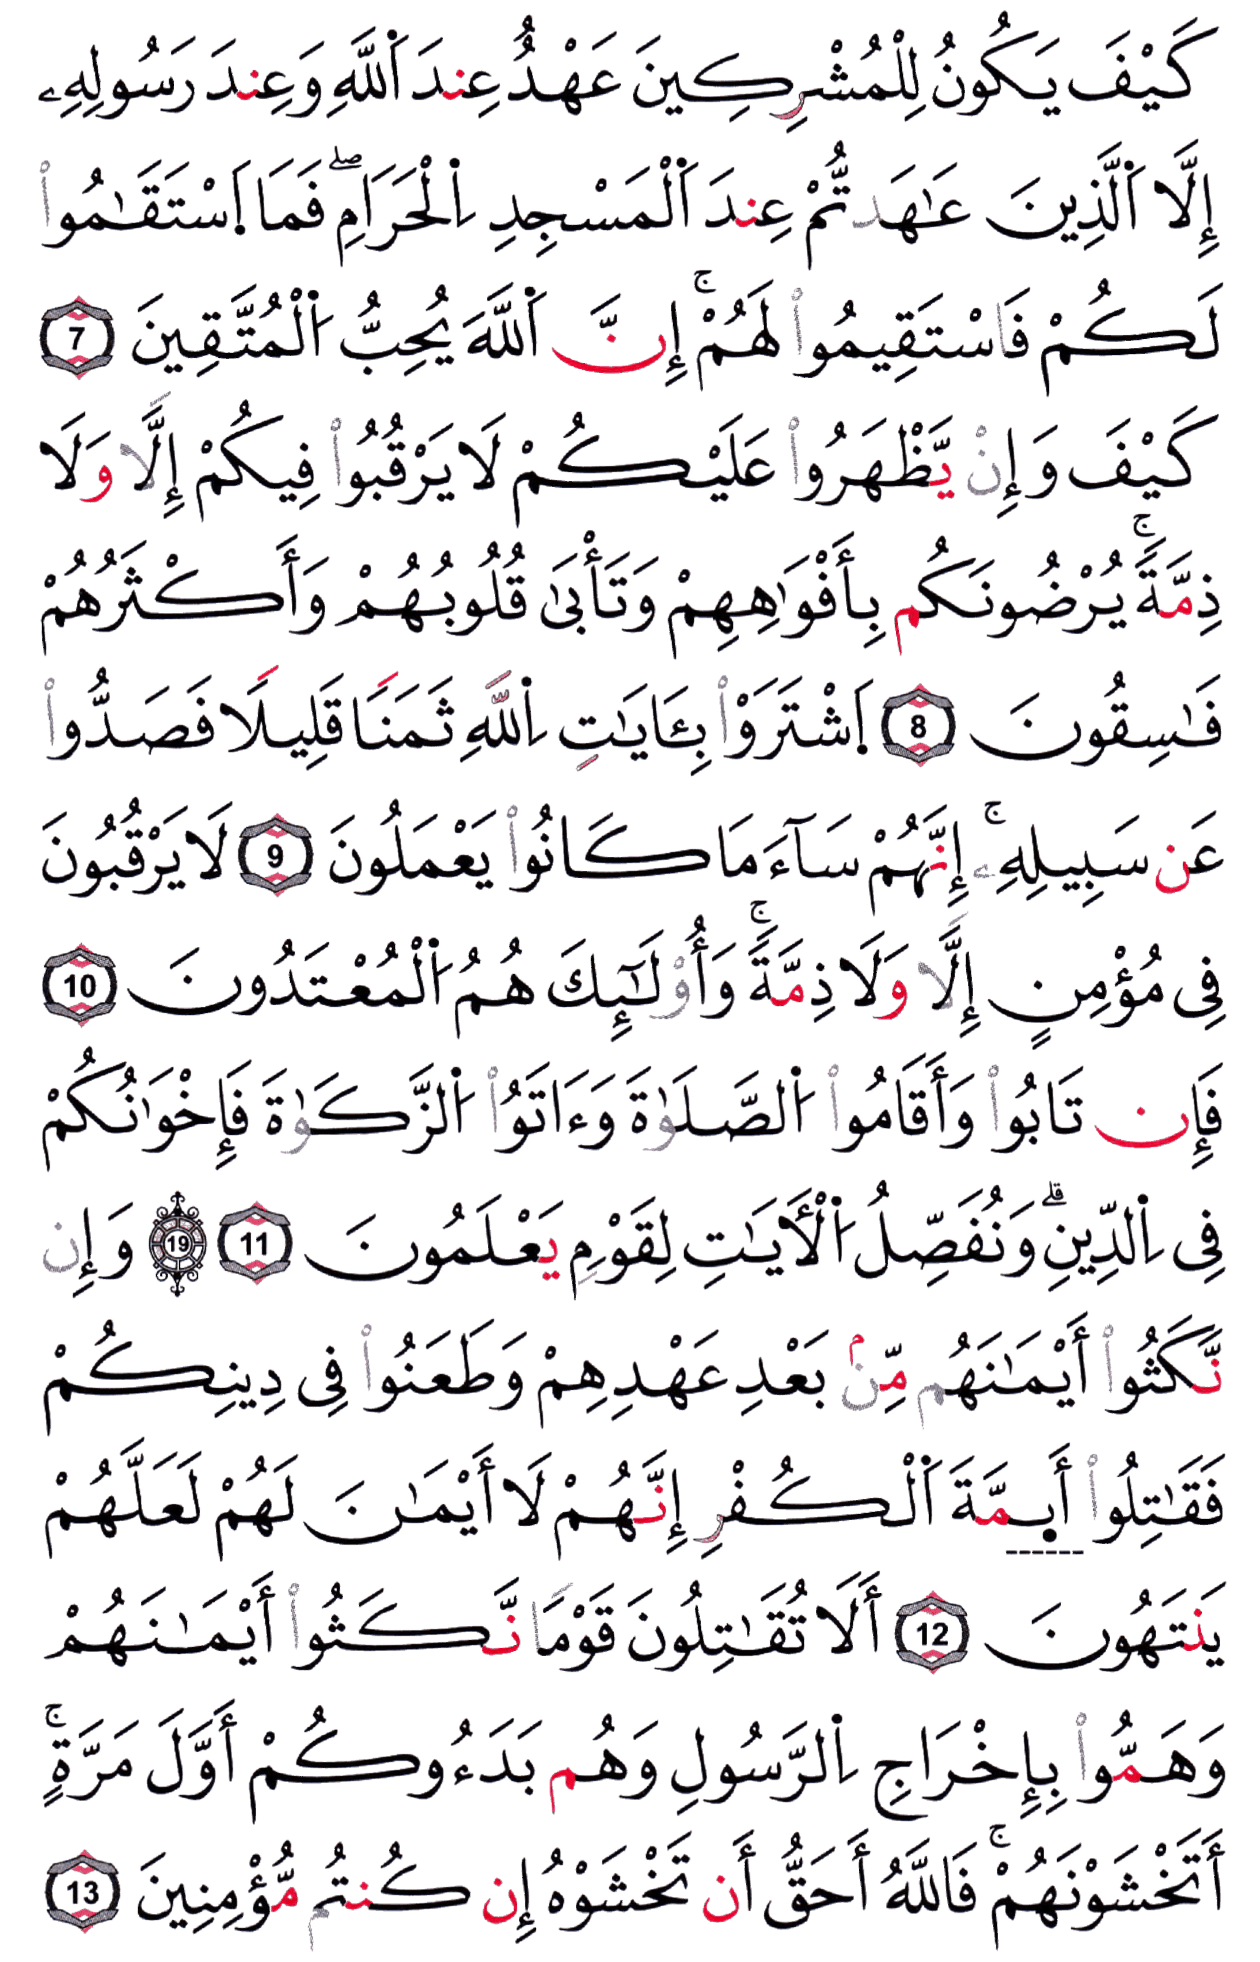 كَيْفَ يَكُونُ لِلْمُشْرِكِينَ عَهْدٌ عِندَ اَ۬للَّهِ وَعِندَ رَسُولِهِۦ
إِلَّا اَ۬لَّذِينَ عَٰهَدتُّمْ عِندَ اَ۬لْمَسْجِدِ اِ۬لْحَرَامِۖ فَمَا اَ۪سْتَقَٰمُواْ
لَكُمْ فَاسْتَقِيمُواْ لَهُمْۚ إِنَّ اَ۬للَّهَ يُحِبُّ اُ۬لْمُتَّقِينَ 7
كَيْفَ وَإِنْ يَّظْهَرُواْ عَلَيْكُمْ لَا يَرْقُبُواْ فِيكُمْ إِلّٗا وَلَا
ذِمَّةٗۚ يُرْضُونَكُم بِأَفْوَٰهِهِمْ وَتَأْبَىٰ قُلُوبُهُمْ وَأَكْثَرُهُمْ
فَٰسِقُونَ 8 اَ۪شْتَرَوْاْ بِـَٔايَٰتِ اِ۬للَّهِ ثَمَنٗا قَلِيلٗا فَصَدُّواْ
عَن سَبِيلِهِۦۚ إِنَّهُمْ سَآءَ مَا كَانُواْ يَعْمَلُونَ 9 لَا يَرْقُبُونَ
فِى مُؤْمِنٍ إِلّٗا وَلَا ذِمَّةٗۚ وَأُوْلَٰٓئِكَ هُمُ اُ۬لْمُعْتَدُونَ 10
فَإِن تَابُواْ وَأَقَامُواْ اُ۬لصَّلَوٰةَ وَءَاتَوُاْ اُ۬لزَّكَوٰةَ فَإِخْوَٰنُكُمْ
فِى اِ۬لدِّينِۗ وَنُفَصِّلُ اُ۬لْأٓيَٰتِ لِقَوْمٖ يَعْلَمُونَ 11 19 وَإِن
نَّكَثُواْ أَيْمَٰنَهُم مِّنۢ بَعْدِ عَهْدِهِمْ وَطَعَنُواْ فِى دِينِكُمْ
فَقَٰتِلُواْ أَى۪مَّةَ اَ۬لْكُفْرِ إِنَّهُمْ لَا أَيْمَٰنَ لَهُمْ لَعَلَّهُمْ
يَنتَهُونَ 12 أَلَا تُقَٰتِلُونَ قَوْمٗا نَّكَثُواْ أَيْمَٰنَهُمْ
وَهَمُّواْ بِإِخْرَاجِ اِ۬لرَّسُولِ وَهُم بَدَءُوكُمْ أَوَّلَ مَرَّةٍۚ
أَتَخْشَوْنَهُمْۚ فَاللَّهُ أَحَقُّ أَن تَخْشَوْهُ إِن كُنتُم مُّؤْمِنِينَ 13